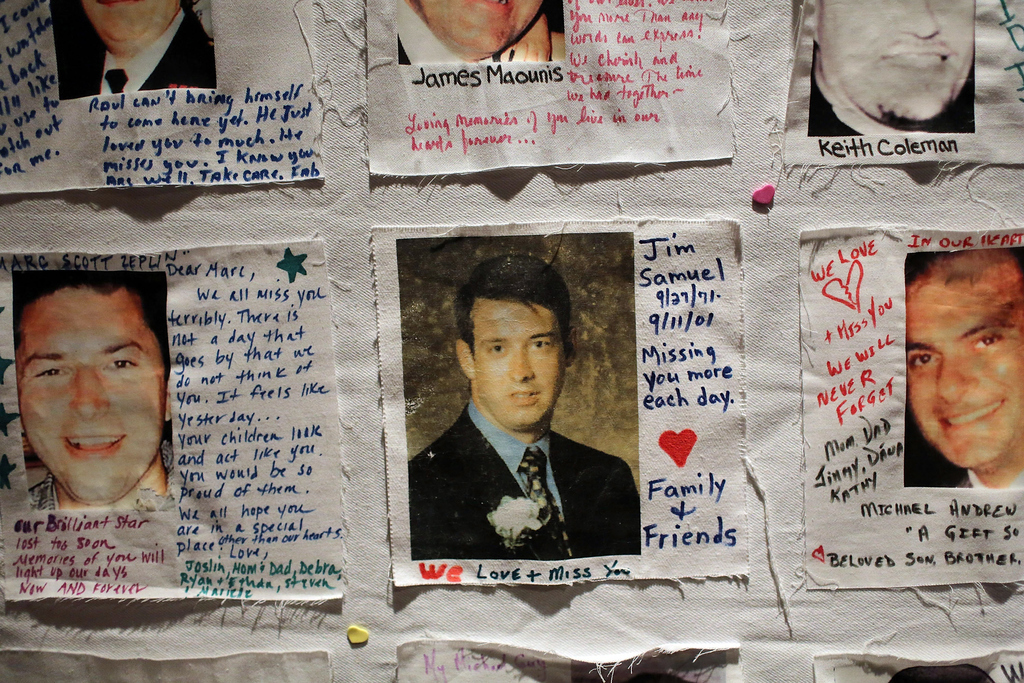 I could
back
like
use to
out
for me.
Raul can't bring himself
to come home yet. He Just
loved you to much. He
misses you. I know you
are well. Take care. Fab
James Maounis
you more Than any
words can express!
We cherish and
treasure The time
we had together~
Loving memories of you live in our
hearts forever...
Keith Coleman
MARC SCOTT ZEPLIN
Dear Marc,
We all miss you
terribly. There is
not a day that
goes by that we
do not think of
you. It feels like
yesterday...
your children look
and act like you.
You would be so
proud of them.
We all hope you
are in a special
place other than our hearts.
Love,
Joslin, Mom & Dad, Debra,
Ryan + Ethan, Steven
our Brilliant Star
lost too soon
Memories of you will
light up our days
Now AND Forever
Jim
Samuel
9/27/71-
9/11/01
Missing
you more
each day.
Family
+
Friends
We Love + Miss You
IN OUR HEART
WE LOVE
+ MISS YOU
WE WILL
NEVER
FORGET
MOM, DAD
JIMMY, DANA
KATHY
MICHAEL ANDREW
"A GIFT SO
BELOVED SON, BROTHER,
My